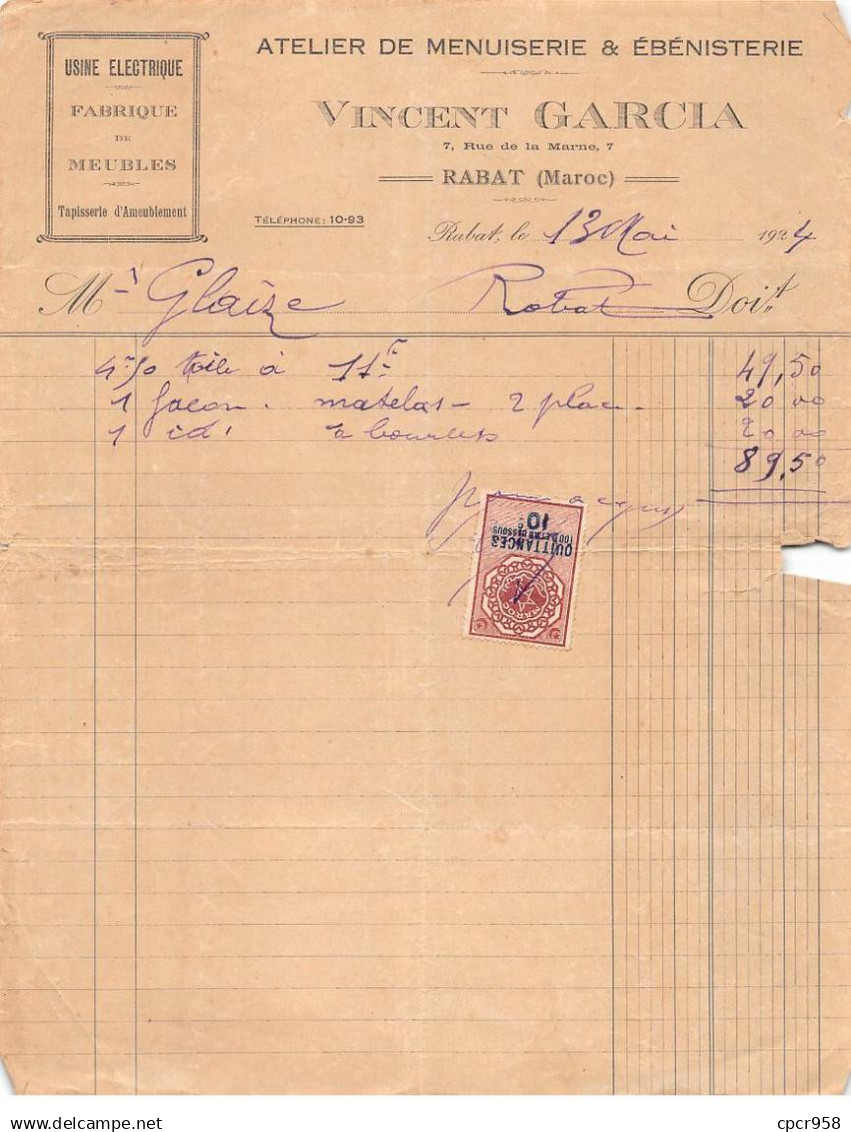 USINE ELECTRIQUE
FABRIQUE
DE
MEUBLES
Tapisserie d'Ameublement
ATELIER DE MENUISERIE & ÉBÉNISTERIE
VINCENT GARCIA
7, Rue de la Marne, 7
RABAT (Maroc)
TÉLÉPHONE: 10-93
Rabat, le 13 Mai 1924
Mr Glaize Rabat Doit
4m50 toile à 11f 49,50
1 façon. matelas - 2 plac - 20 00
1 id. 20 00
89,50
Pour acquis
QUITTANCES
10
delcampe.net
cpcr958